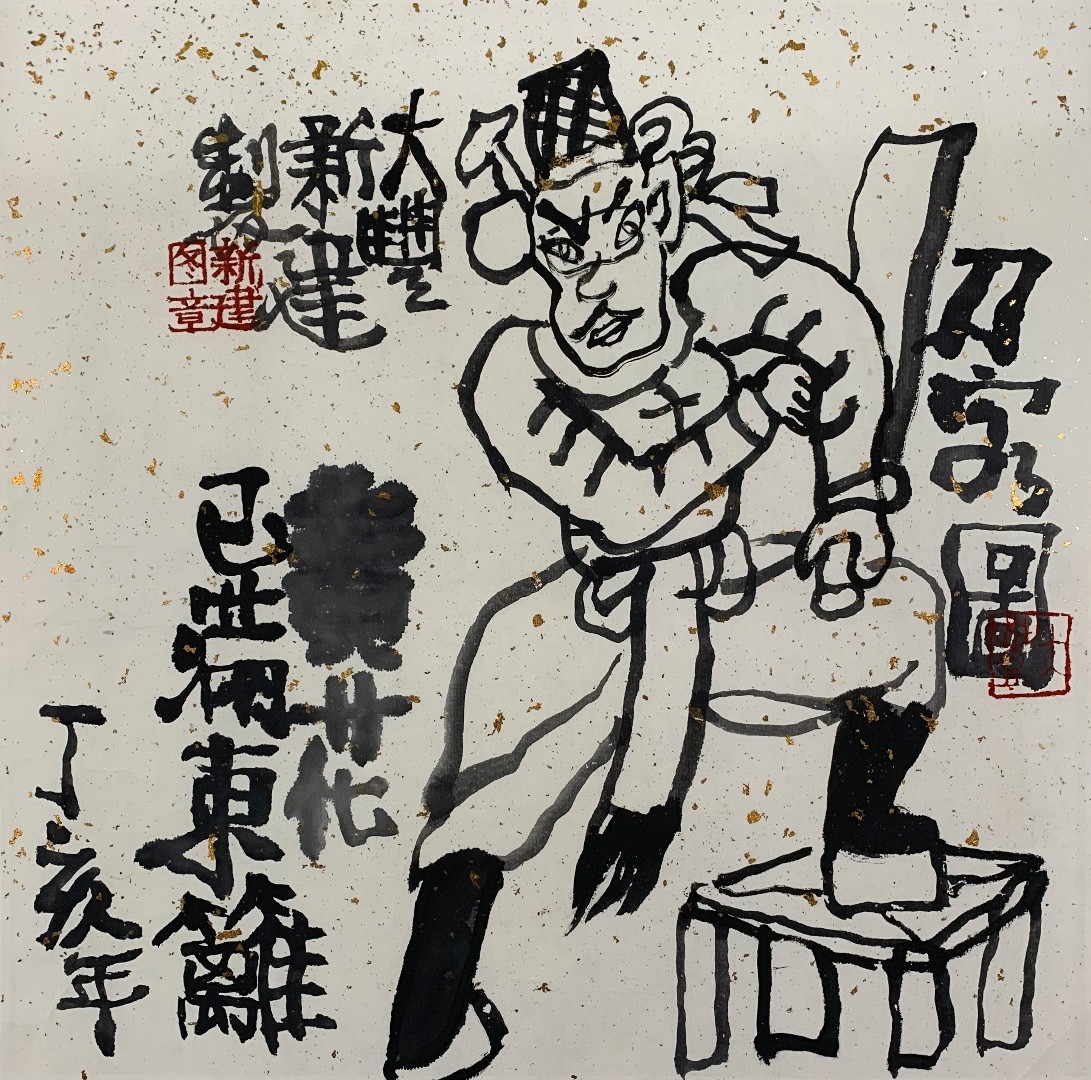 刀客圖
大豐
新建
製
新建
图章
黄花
已满東籬
丁亥年